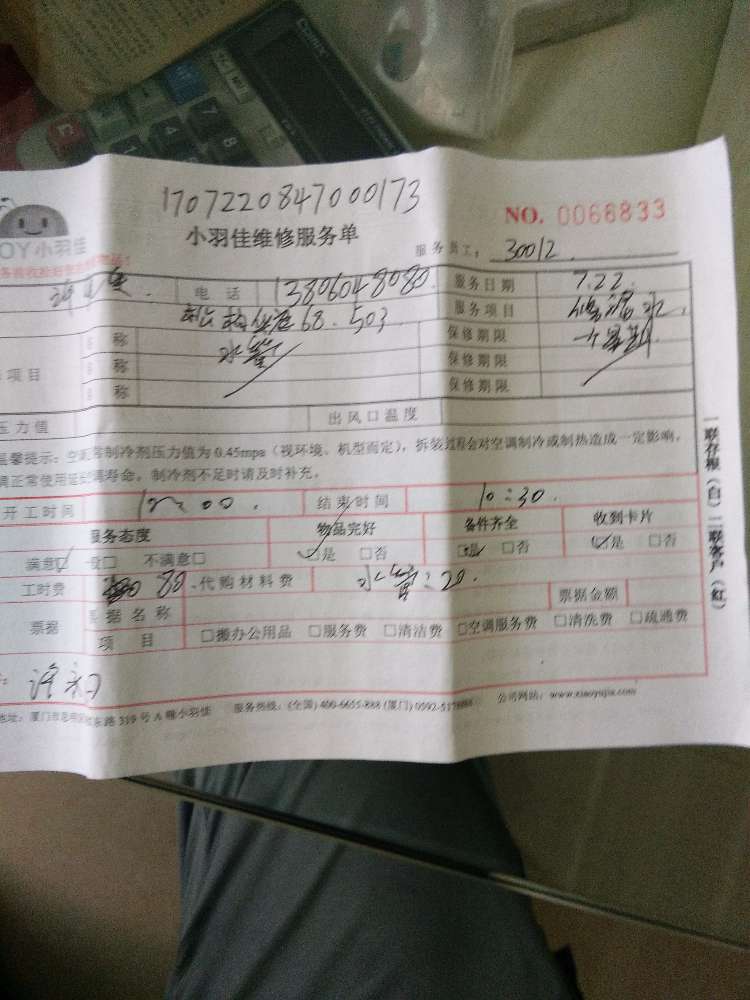 1707220847000173
NO. 0068833
OY小羽佳
小羽佳维修服务单
服务员工: 30012
电话 13806048080 服务日期 7.22.
68.503. 服务项目 水
称 水管 保修期限
项目 称 保修期限
称 保修期限
压力值 出风口温度
温馨提示:空调正常制冷剂压力值为0.45mpa(视环境、机型而定),拆装过程会对空调制冷或制热造成一定影响,
调正常使用 寿命。制冷剂不足时请及时补充。
开工时间 :00. 结束时间 10:30.
服务态度 物品完好 备件齐全 收到卡片
满意☑ 一般□ 不满意□ ☑是 □否 ☑是 □否 ☑是 □否
工时费 80. 代购材料费 水管:20.
票据 票据名称 票据金额
项目 □搬办公用品 □服务费 □清洁费 □空调服务费 □清洗费 □疏通费
地址:厦门市 东路319号A幢小羽佳 服务热线:(全国)400-6655-888 (厦门)0592- 公司网站:www.xiaoyujia.com
一联存根(白)二联客户(红)